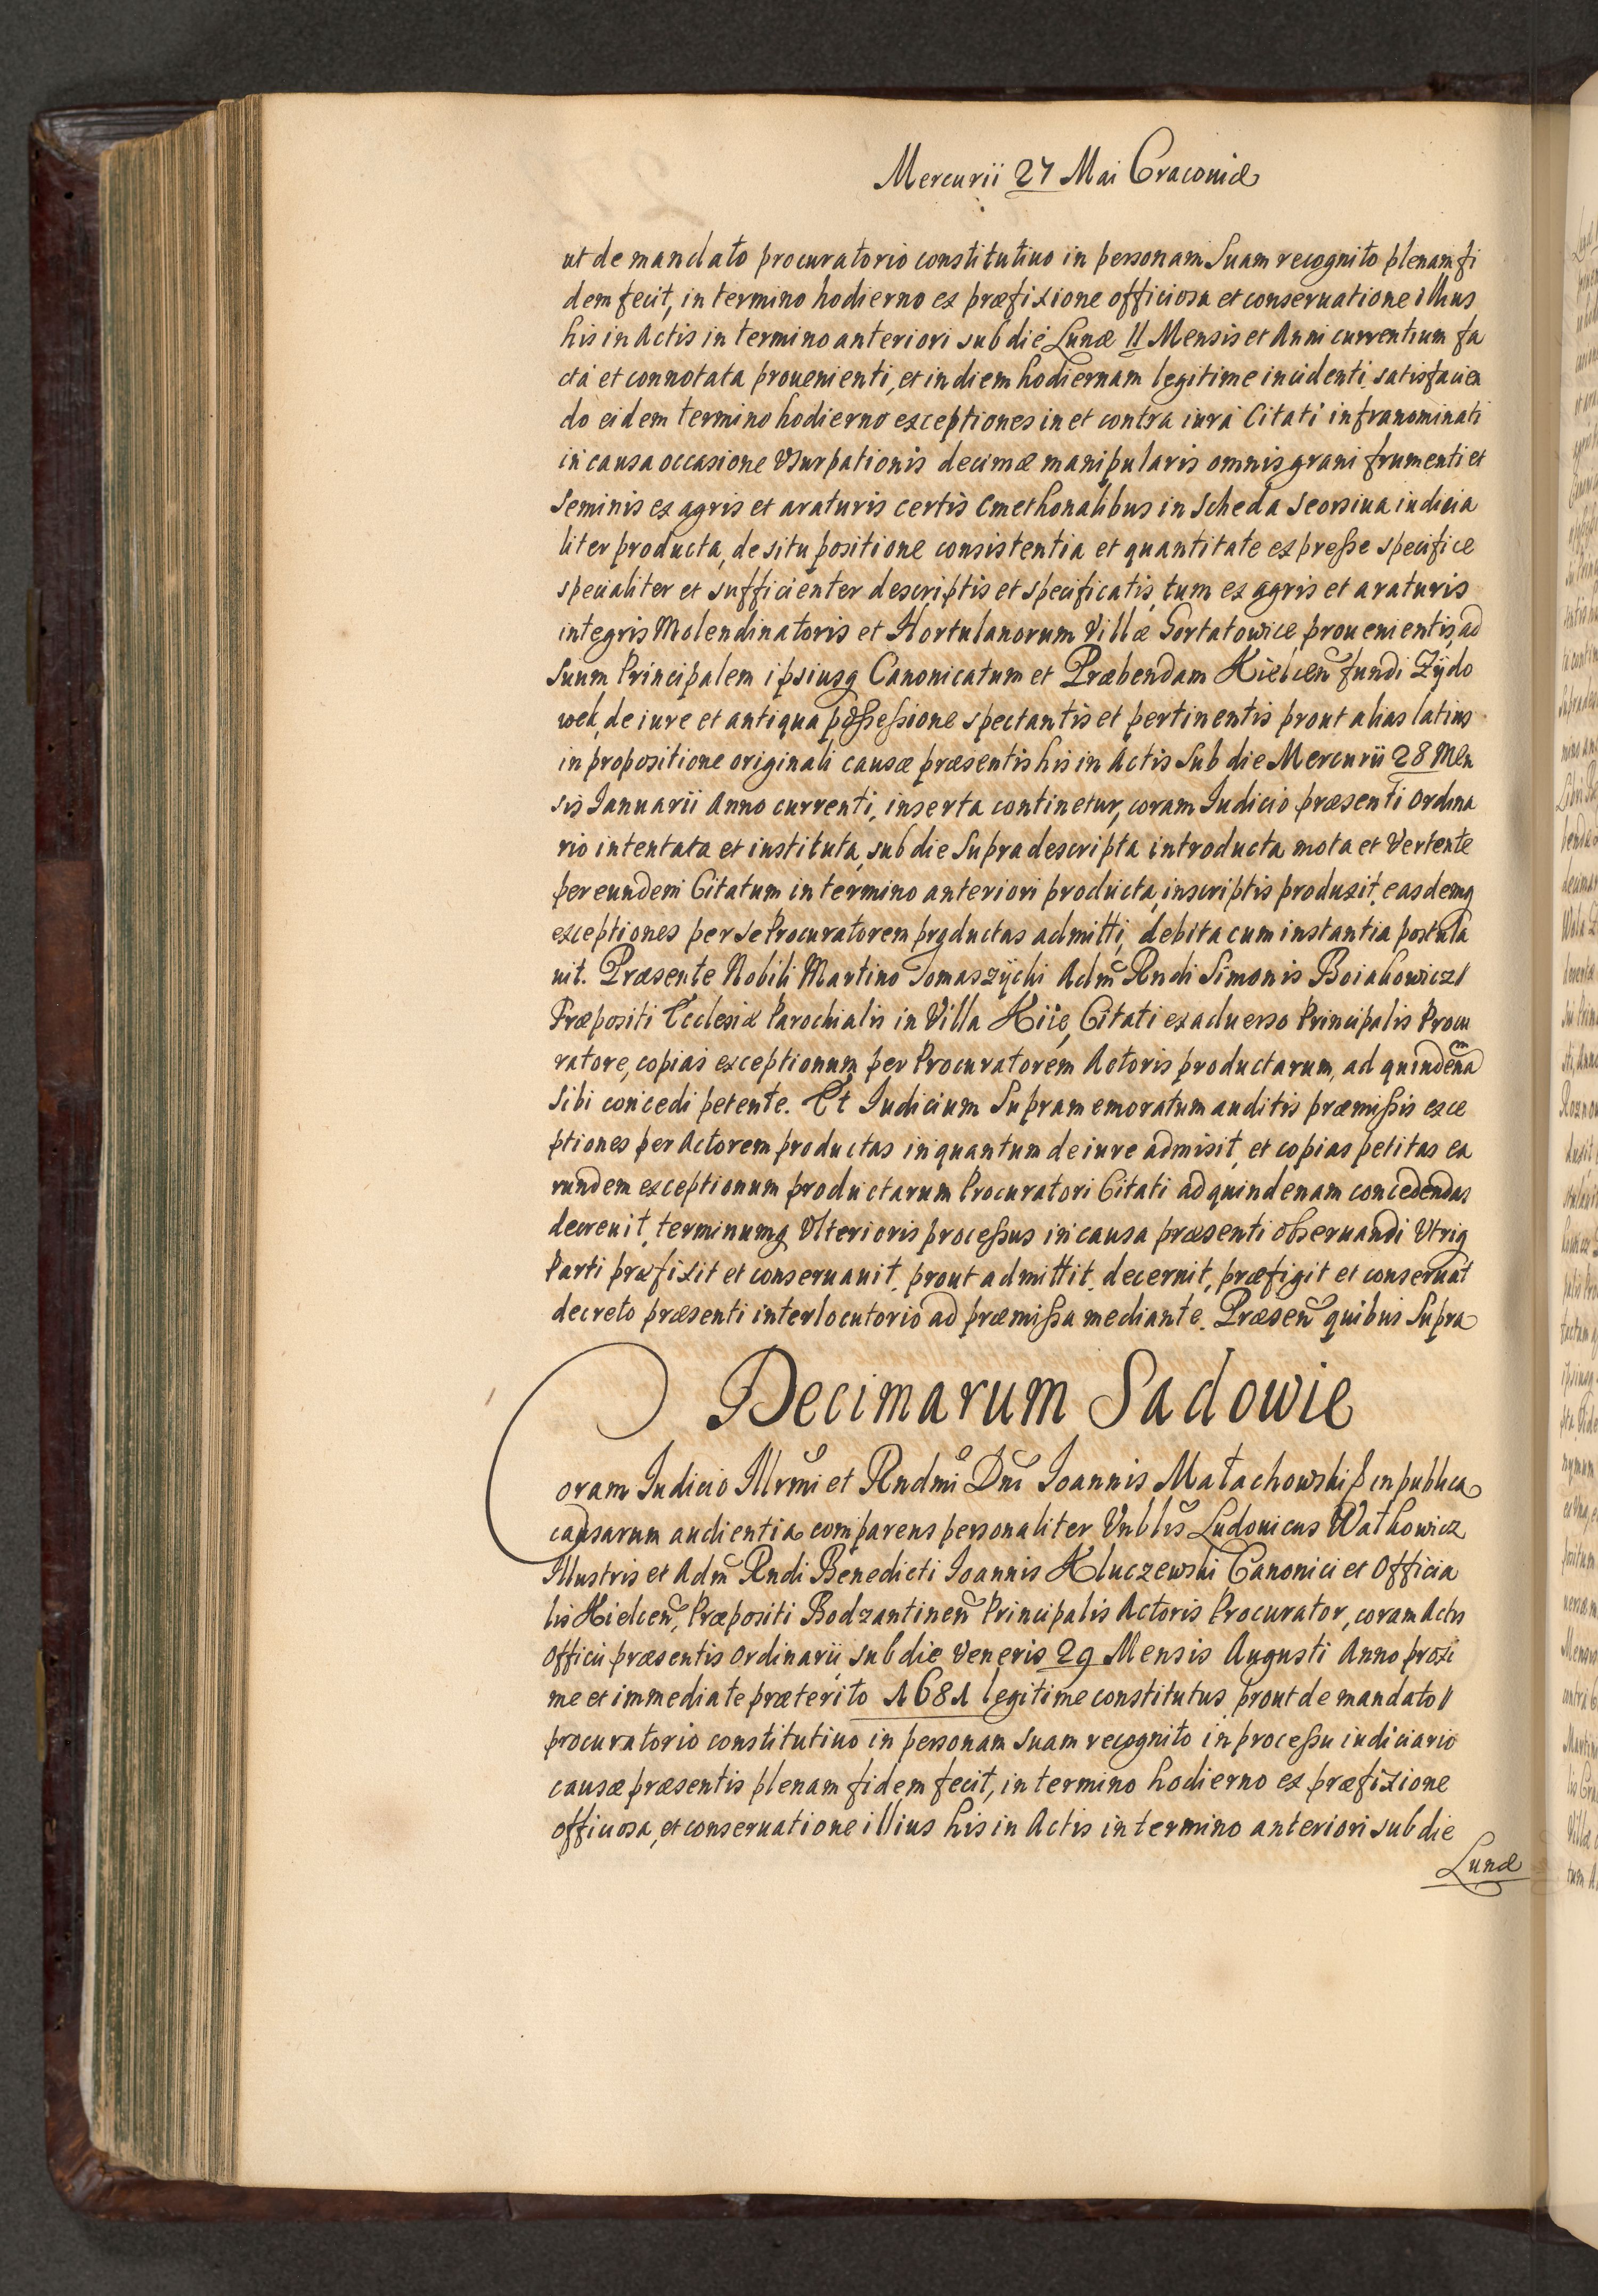 Mercurii 27 Mai Cracoviæ
ut de mandato procuratorio constitutiuo in personam Suam recognito plenam fi
dem fecit, in termino hodierno ex præfixione officiosa et conseruatione illius
his in Actis in termino anteriori sub die Lunæ 11 Mensis et Anni currentium fa
cta et connotata prouenienti, et in diem hodiernam legitime incidenti, satisfacien
do eidem termino hodierno exceptiones in et contra iura Citati infranominati
in causa occasione Vsurpationis decimæ manipularis omnis grani frumenti et
Seminis ex agris et araturis certis Cmethonalibus in Scheda Seorsiua iudicia
liter producta, de situ positione consistentia et quantitate expreße specifice
specialiter et sufficienter descriptis et specificatis, tum ex agris et araturis
integris Molendinatoris et Hortulanorum Villæ Gortatowice prouenientis, ad
Suum Principalem ipsiusq Canonicatum et Præbendam Kielceñ fundi Zÿdo
wek, de iure et antiqua poßeßione spectantis et pertinentis prout alias latius
in propositione originali causæ præsentis his in Actis Sub die Mercurii 28 Men
sis Ianuarii Anno currenti, inserta continetur, coram Iudicio præsenti Ordina
rio intentata et instituta, sub die Supradescripta introducta mota et Vertente
per eundem Citatum in termino anteriori producta, inscriptis produxit, easdemq
exceptiones per se Procuratorem productas admitti, debita cum instantia postula
uit. Præsente Nobili Martino Tomaszÿcki Adm̃ Rndi Simonis Boiakowicz
Præpositi Ecclesiæ Parochialis in Villa Kiie, Citati ex aduerso Principalis Procu
ratore, copias exceptionum per Procuratorem Actoris productarum, ad quindenam
Sibi concedi petente. Et Iudicium Supramemoratum auditis præmißis exce
ptiones per Actorem productas inquantum de iure admisit, et copias petitas ea
rundem exceptionum productarum Procuratori Citati ad quindenam concedendas
decreuit, terminumq Vlterioris proceßus in causa præsenti obseruandi Vtriq
Parti præfixit et conseruauit, prout admittit, decernit, præfigit et conseruat
decreto præsenti interlocutorio ad præmißa mediante. Præseñ quibus Supra
Decimarum Sadowie
Coram Iudicio Illrm̃i et Rndm̃i Dñi Ioannis Małachowski p in publica
causarum audientia comparens personaliter Vnblis̃ Ludouicus Wałkowicz
Illustris et Adm̃ Rndi Benedicti Ioannis Kluczewski Canonici et Officia
lis Kielceñ, Præpositi Bodzantineñ Principalis Actoris Procurator, coram Actis
Officii præsentis Ordinarii sub die Veneris 29 Mensis Augusti Anno proxi
me et immediate præterito 1681 legitime constitutus, prout de mandato
procuratorio constitutiuo in personam Suam recognito in proceßu iudiciario
causæ præsentis plenam fidem fecit, in termino hodierno ex præfixione
officiosa, et conseruatione illius his in Actis in termino anteriori sub die
Lunæ